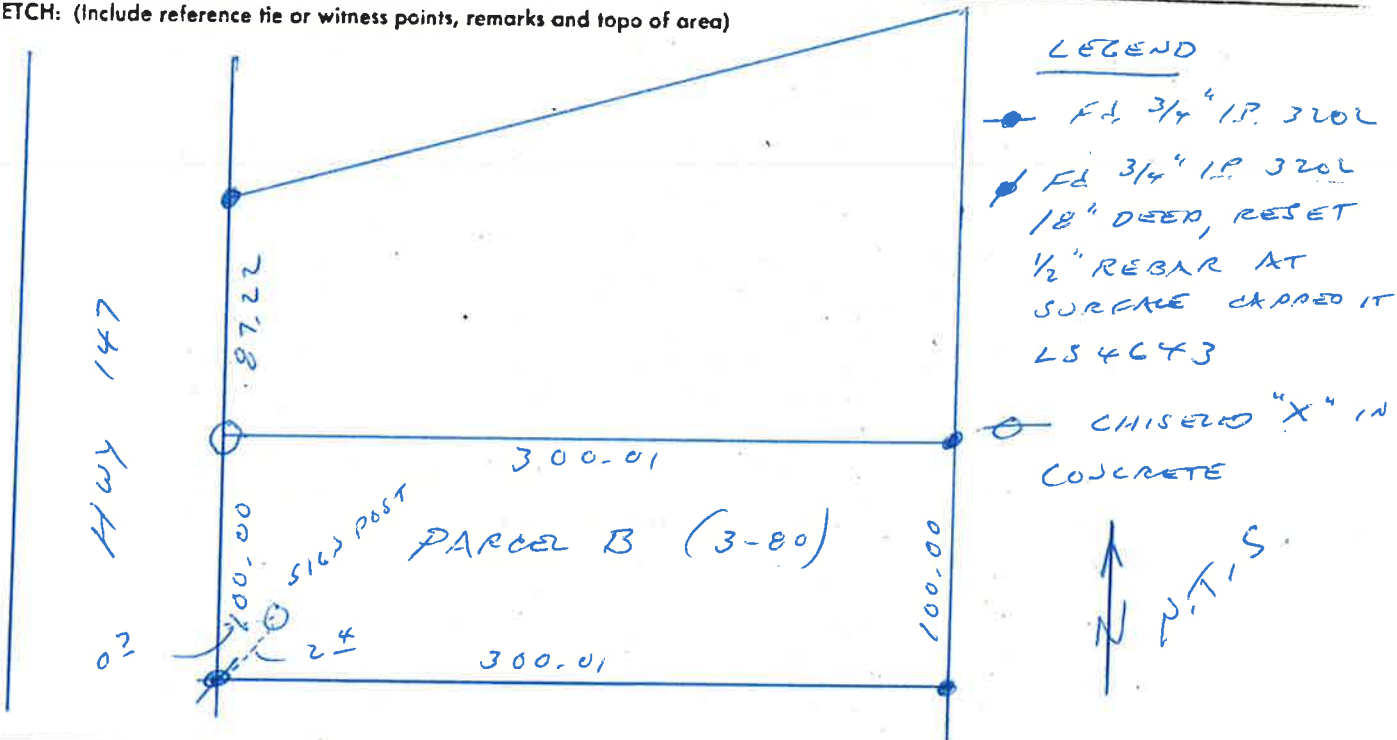 ETCH: (Include reference tie or witness points, remarks and topo of area)
LEGEND
Fd. 3/4" I.P. 3202
Fd 3/4" I.P. 3202
18" DEEP, RESET
1/2" REBAR AT
SURFACE CAPPED IT
LS 4643
CHISELED "X" IN
CONCRETE
87.22
HWY 147
300.01
100.00
SIGN POST
PARCEL B (3-80)
100.00
2 4
300.01
N
N.T.S.